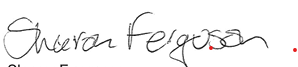 Sharon Ferguson